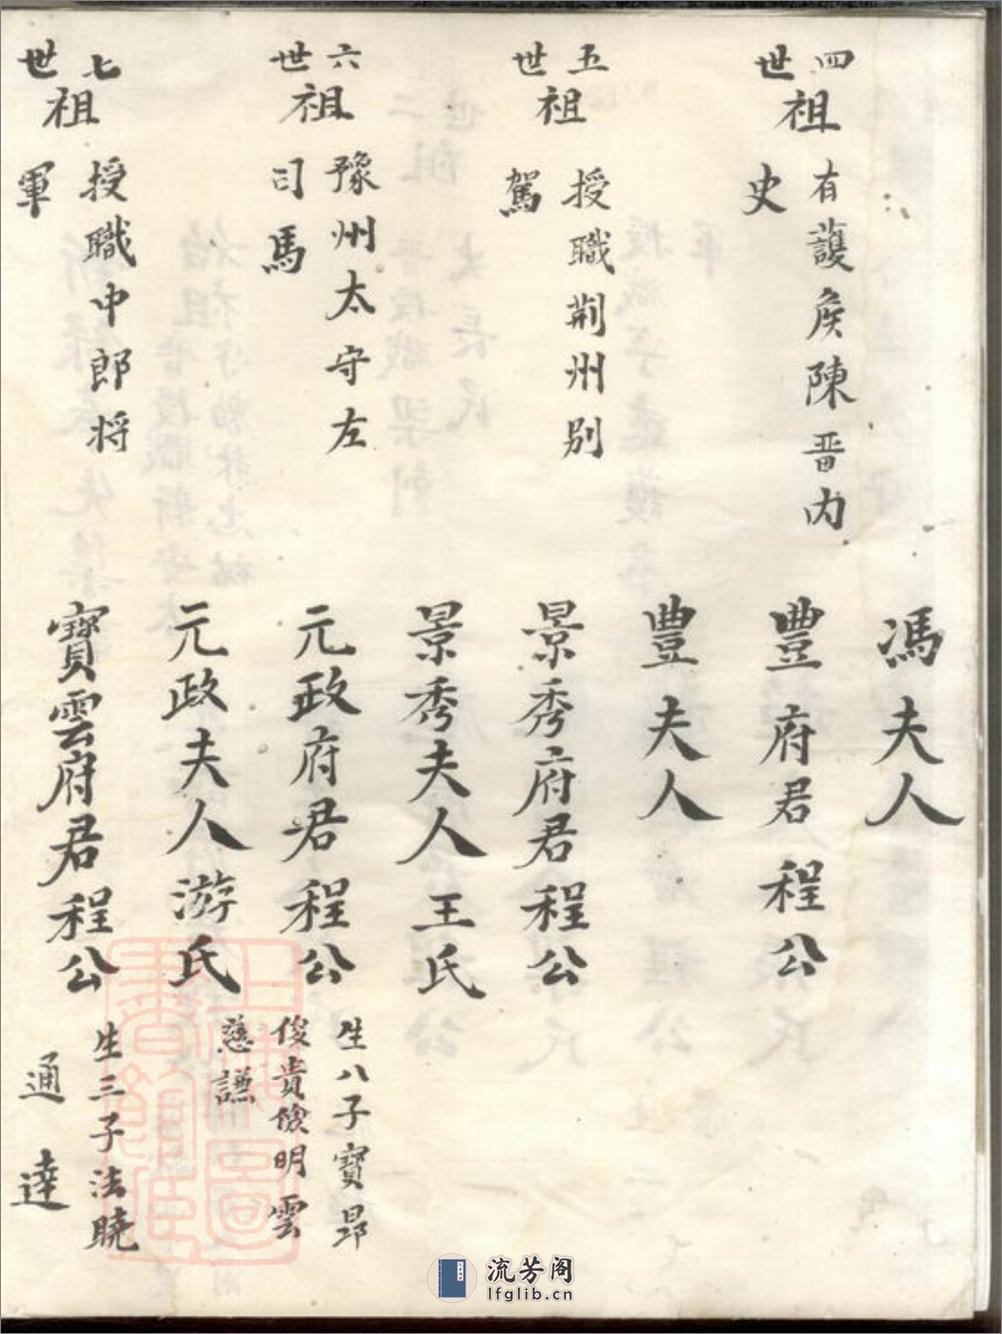 馮夫人
四世祖
有護侯陳晋內
史
豐府君程公
豐夫人
五世祖
授職荊州別
駕
景秀府君程公
景秀夫人王氏
六世祖
豫州太守左
司馬
元政府君程公
生八子寶昂
俊貴儉明雲
慈謙
元政夫人游氏
七世祖
授職中郎将
軍
寶雲府君程公
生三子法曉
通達
上海圖書館藏
流芳阁
lfglib.cn